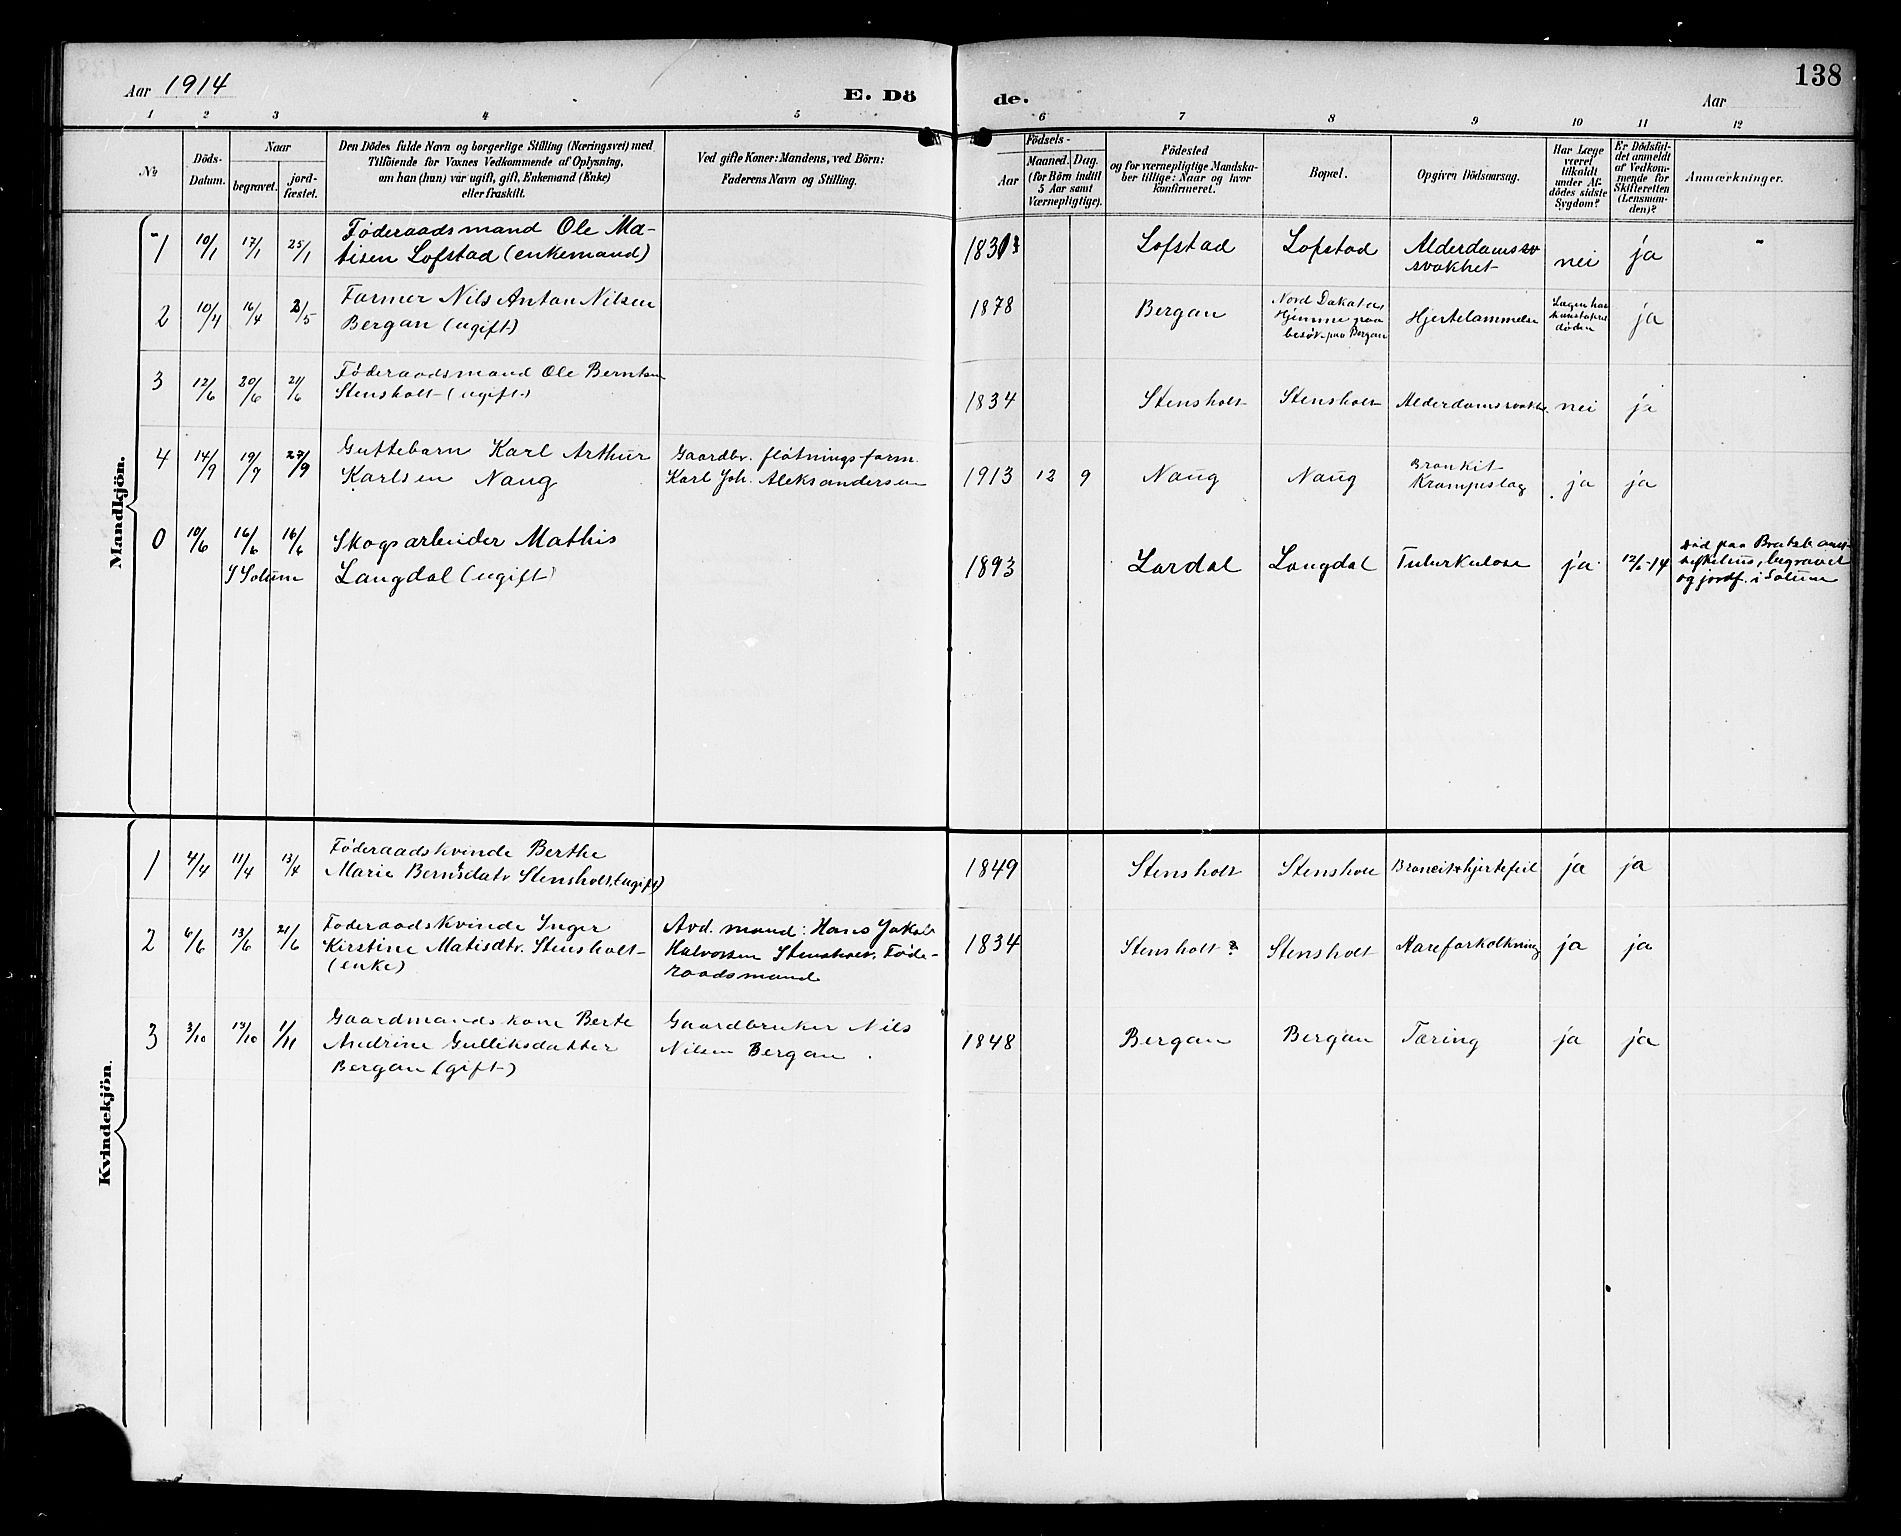 138
Aar 1914
E. Dö
de.
Aar
1 2 3 4 5 6 7 8 9 10 11 12
№
Döds-
Datum.
Naar
begravet.
jord-
fæstet.
Den Dödes fulde Navn og borgerlige Stilling (Næringsvei) med
Tilföiende for Voxnes Vedkommende af Oplysning,
om han (hun) vår ugift, gift, Enkemand (Enke)
eller fraskilt.
Ved gifte Koner: Mandens, ved Börn:
Faderens Navn og Stilling.
Födsels-
Aar
Maaned. Dag.
(for Börn indtil
5 Aar samt
Værnepligtige).
Födested
og for værnepligtige Mandska-
ber tillige: Naar og hvor
konfirmeret.
Bopæl.
Opgiven Dödsaarsag.
Har Læge
været
tilkaldt
under Af-
dödes sidste
Sygdom?
Er Dödsfal-
det anmeldt
af Vedkom-
mende for
Skifteretten
(Lensman-
den)?
Anmærkninger.
Mandkjön.
1 10/1 17/1 25/1 Føderaadsmand Ole Ma-
tisen Lofstad (enkemand)
Lofstad Lofstad Alderdoms
svakhet nei ja
2 10/4 16/4 3/5 Farmer Nils Anton Nilsen
Bergan (ugift)
1878 Bergan Nord Dakota
Hjemme paa
besøk paa Bergan
Hjertelammelse
Lægen har
konstateret
døden
ja
3 12/6 20/6 21/6 Føderaadsmand Ole Berntsen
Stensholt (ugift)
1834 Stensholt Stensholt Alderdomssvakh. nei ja
4 14/9 19/9 27/9 Guttebarn Karl Arthur
Karlsen Naug
Gaardbr. fløtningsform.
Karl Joh. Aleksandersen
1913 12 9 Naug Naug Bronkit
Krampeslag ja ja
0 10/6 16/6 16/6 Skogsarbeider Mathis
I Solum Langdal (ugift)
1893 Lardal Langdal Tuberkulose ja 12/6-14
Død paa Bratsb. amts
sykehus, begravet
og jordf. i Solum
Kvindekjön.
1 4/4 11/4 13/4 Føderaadskvinde Berthe
Marie Berntsdatr Stensholt (ugift)
1849 Stensholt Stensholt Broncit & hjertefeil ja ja
2 6/6 13/6 21/6 Føderaadskvinde Inger
Kirstine Matisdtr. Stensholt
(enke)
Avd. mand: Hans Jakob
Halvorsen Stensholt, Føde-
raadsmand
1834 Stensholt? Stensholt Aareforkalkning ja ja
3 3/10 13/10 1/11 Gaardmandskone Berte
Andrine Gulliksdatter
Bergan (gift)
Gaardbruker Nils
Nilsen Bergan.
1848 Bergan Bergan Tæring ja ja